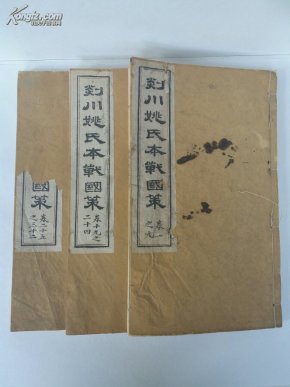 Kongfz.com
孔夫子旧书网
剡川姚氏本戰國策
卷一
之九
剡川姚氏本戰國策
卷十九之
二十四
國策
卷二十五
之三十三